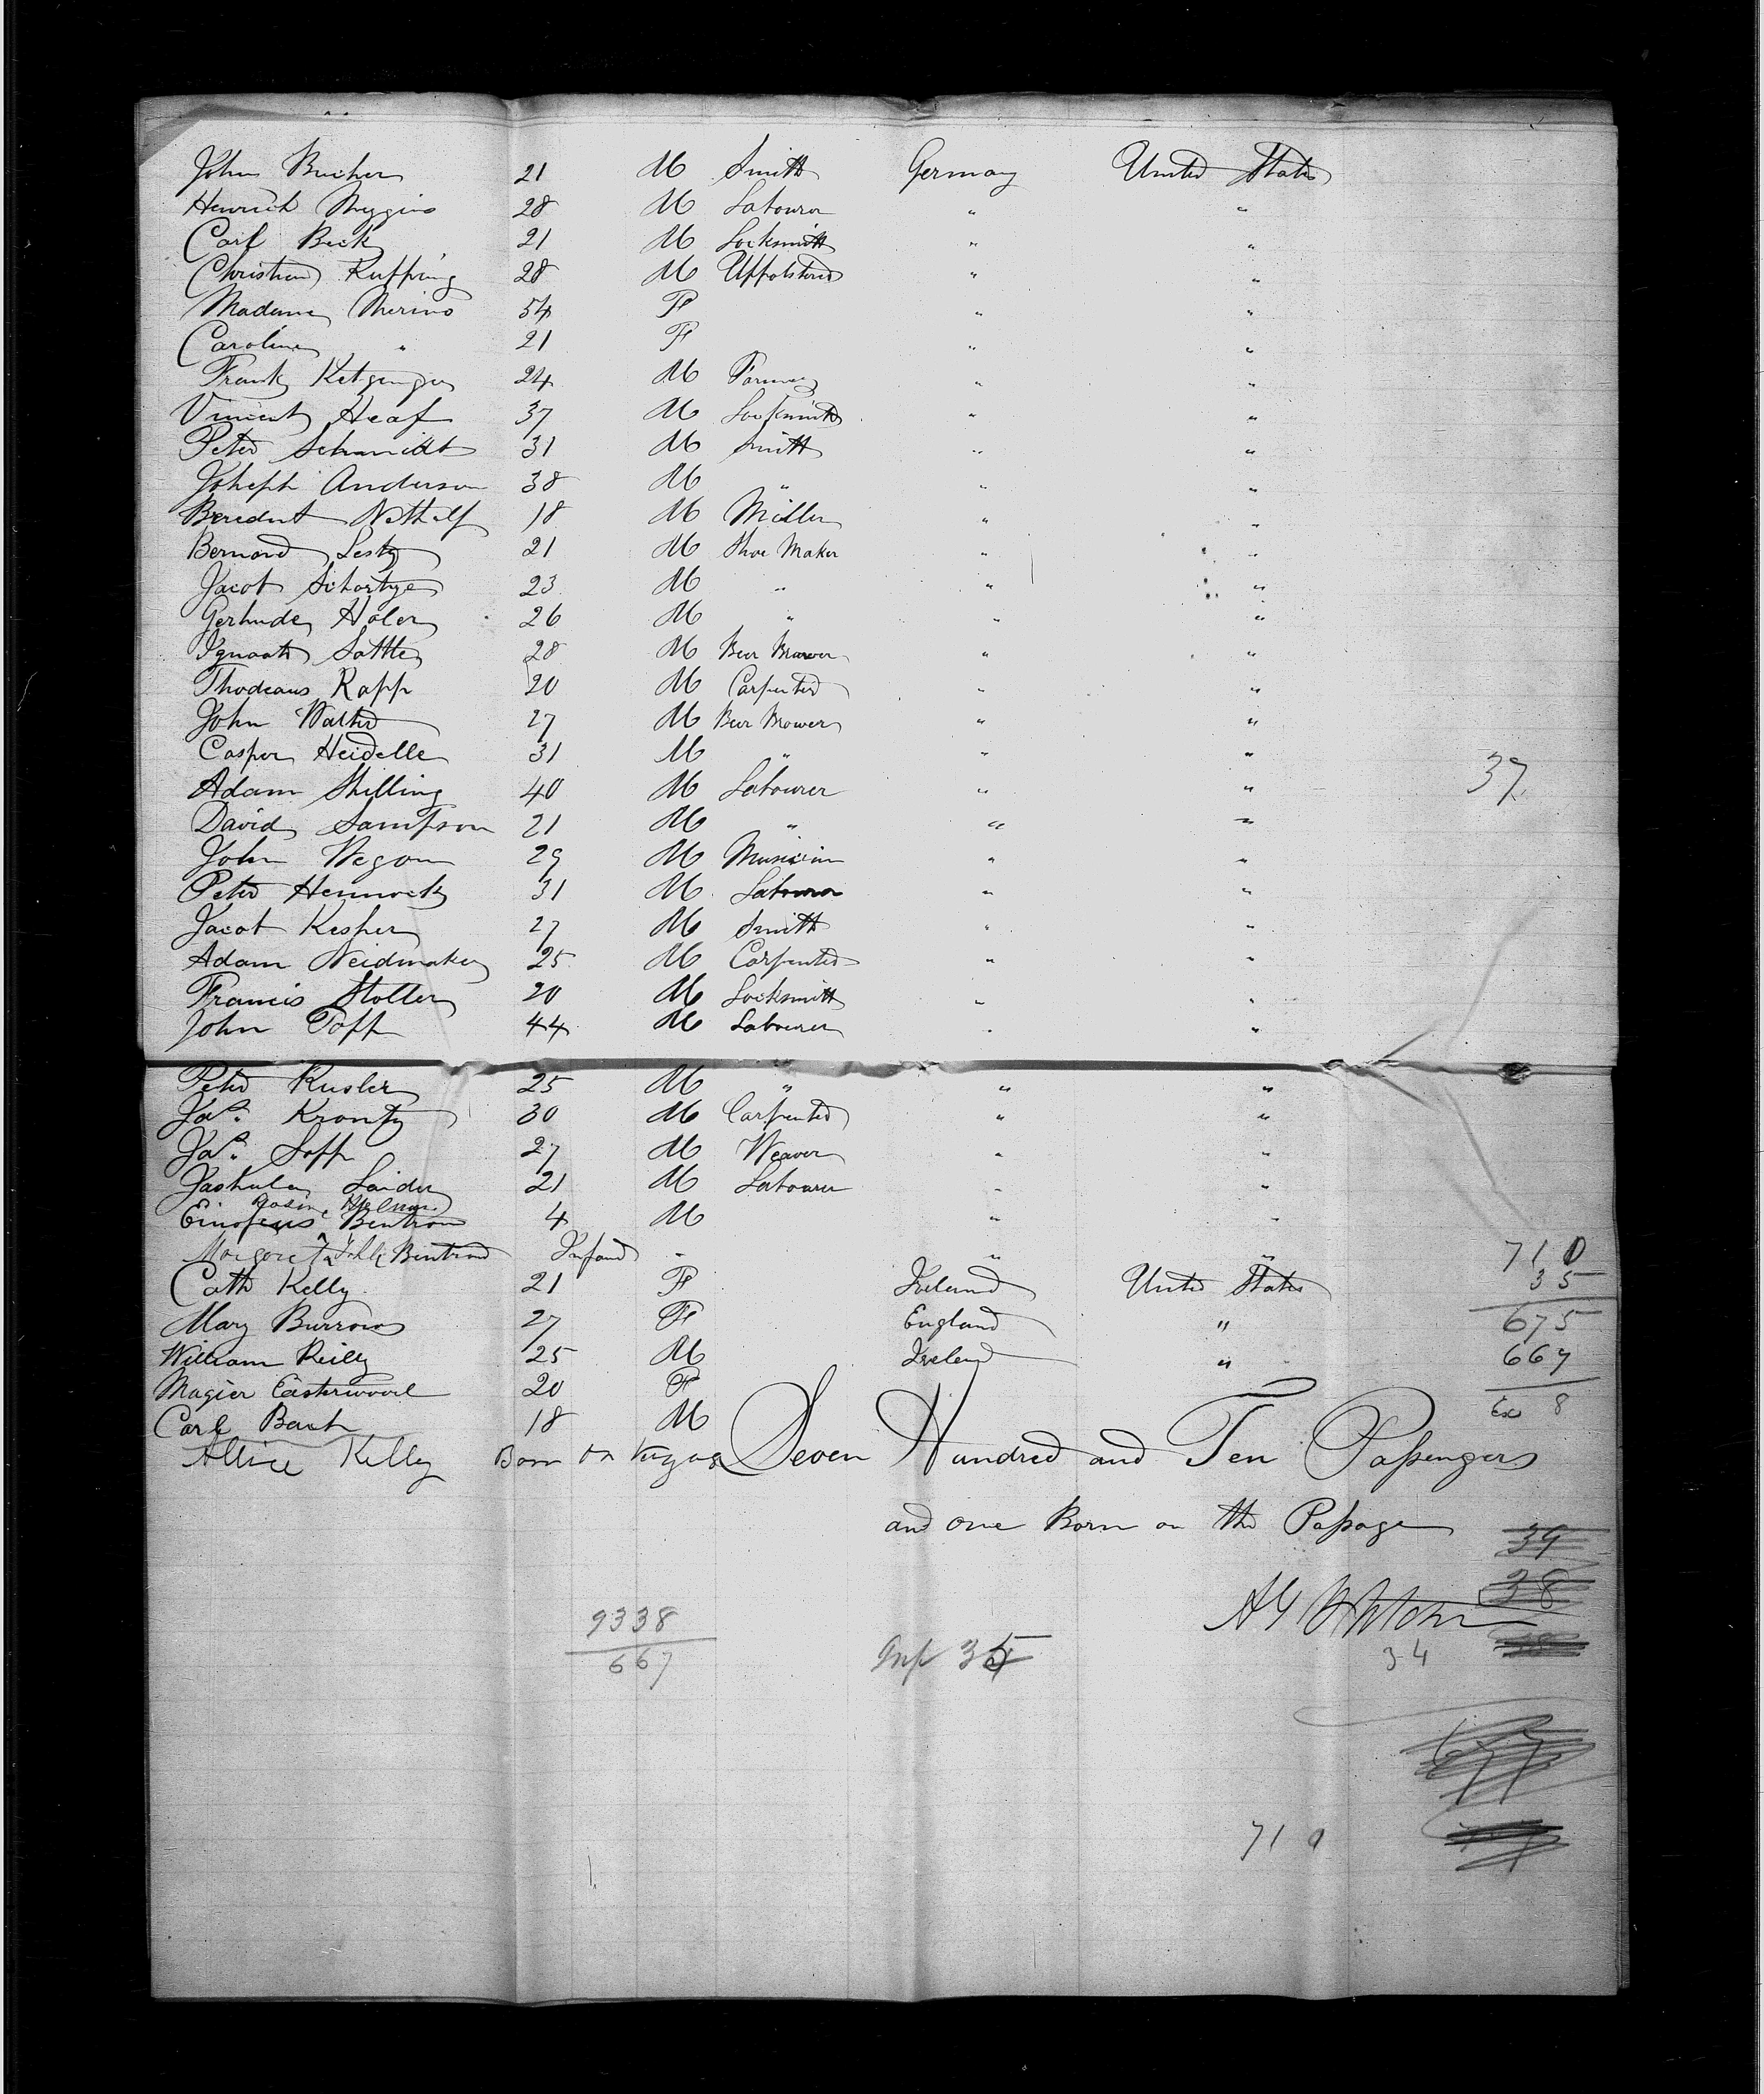 John Bucher 21 M Smith Germany United States
Henrich Meggins 28 M Labourer " "
Carl Beck 21 M Locksmith " "
Christian Kupping 28 M Uppolsterer " "
Madame Merino 54 F " "
Caroline " 21 F " "
Frank 24 M Farmer " "
Vincent Heaf 37 M Locksmith " "
Peter Schmidt 31 M Smith " "
Joheph Anderson 38 M " " "
Benedict 18 M Miller " "
Bernard Lesty 21 M Shoe Maker " "
Jacob 23 M " " "
Gertrude Holer 26 M " " "
Ignaatz Sattler 28 M Beer Brewer " "
Thodeaus Rapp 20 M Carpenter " "
John Walter 27 M Beer Brower " "
Casper Heidelle 31 M " " "
Adam Shilling 40 M Labourer " " 37
David Sampson 21 M " " "
John Wegom 29 M Musician " "
Peter Hennock 31 M Labourer " "
Jacob Kesper 27 M Smith " "
Adam Neidmaker 25 M Carpenter " "
Francis Stotter 20 M Locksmith " "
John Topp 44 M Labourer " "
Peter Kusler 25 M " " "
Jas. Krontz 30 M Carpenter " "
Jas. Sopp 27 M Weaver " "
Sander 21 M Labourer " "
Bentron 4 M " "
Margaret Bentrond Infand " " " 710
Cath Kelly 21 F Ireland United States 35
Mary Burrows 27 F England " 675
William Reilly 25 M Ireland " 667
Magier Easterwood 20 F Ex 8
Carl Bach 18 M
Allice Kelly Born on Voyage Seven Hundred and Ten Passengers
and one Born on the Passage
39
38
9338
667 Inf 35 34
677
710